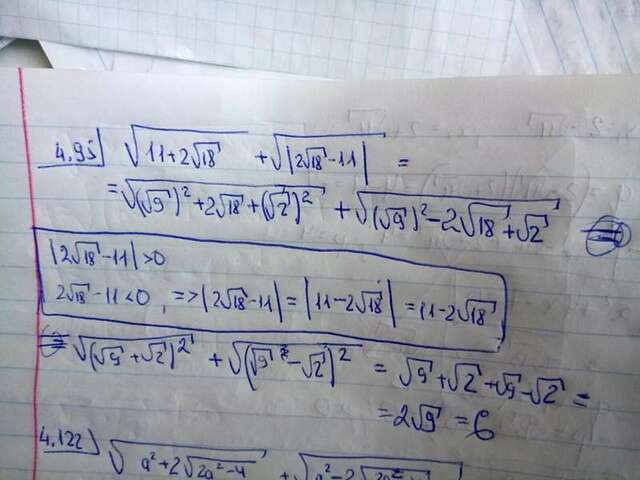 4.95) √(11+2√18) + √|2√18-11| =
= √((√9)²+2√18+(√2)²) + √((√9)²-2√18+√2²)
|2√18-11|>0
2√18-11<0, => |2√18-11| = |11-2√18| = 11-2√18
= √((√9+√2)²) + √((√9²-√2)²) = √9+√2+√9-√2 =
= 2√9 = 6
4.122) √(a²+2√(2a²-4